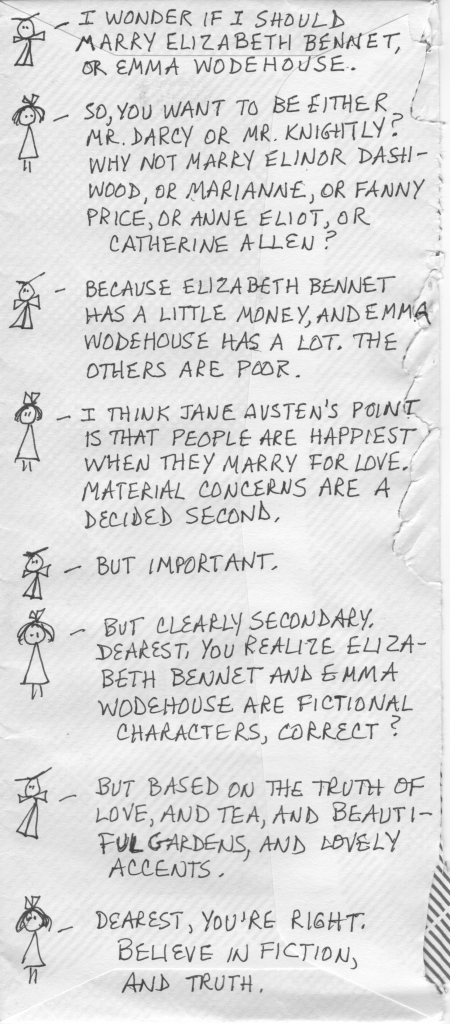 - I WONDER IF I SHOULD
MARRY ELIZABETH BENNET,
OR EMMA WODEHOUSE.
- SO, YOU WANT TO BE EITHER
MR. DARCY OR MR. KNIGHTLY?
WHY NOT MARRY ELINOR DASH-
WOOD, OR MARIANNE, OR FANNY
PRICE, OR ANNE ELIOT, OR
CATHERINE ALLEN?
- BECAUSE ELIZABETH BENNET
HAS A LITTLE MONEY, AND EMMA
WODEHOUSE HAS A LOT. THE
OTHERS ARE POOR.
- I THINK JANE AUSTEN'S POINT
IS THAT PEOPLE ARE HAPPIEST
WHEN THEY MARRY FOR LOVE.
MATERIAL CONCERNS ARE A
DECIDED SECOND.
- BUT IMPORTANT.
- BUT CLEARLY SECONDARY.
DEAREST, YOU REALIZE ELIZA-
BETH BENNET AND EMMA
WODEHOUSE ARE FICTIONAL
CHARACTERS, CORRECT?
- BUT BASED ON THE TRUTH OF
LOVE, AND TEA, AND BEAUTI-
FUL GARDENS, AND LOVELY
ACCENTS.
- DEAREST, YOU'RE RIGHT.
BELIEVE IN FICTION,
AND TRUTH.